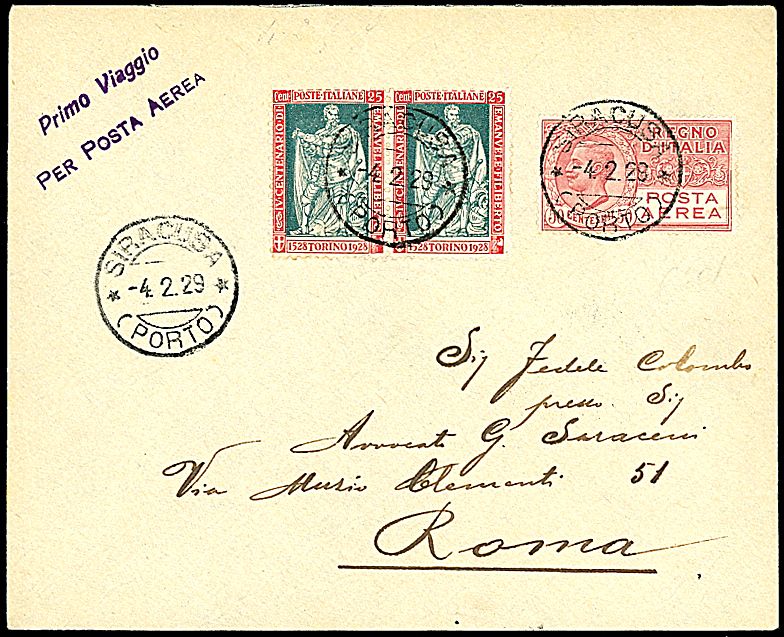 Primo Viaggio
PER POSTA AEREA
Cent. POSTE·ITALIANE 25
IV CENTENARIO DI EMANUELE FILIBERTO
1528 TORINO 1928
Cent. POSTE·ITALIANE 25
IV CENTENARIO DI EMANUELE FILIBERTO
1528 TORINO 1928
SIRACUSA
-4.2.29
(PORTO)
REGNO
D'ITALIA
POSTA
AEREA
SIRACUSA
-4.2.29
(PORTO)
SIRACUSA
-4.2.29
(PORTO)
Sig Fedele Colombo
presso Sig
Avvocato G. Saraceni
Via Muzio Clementi 51
Roma